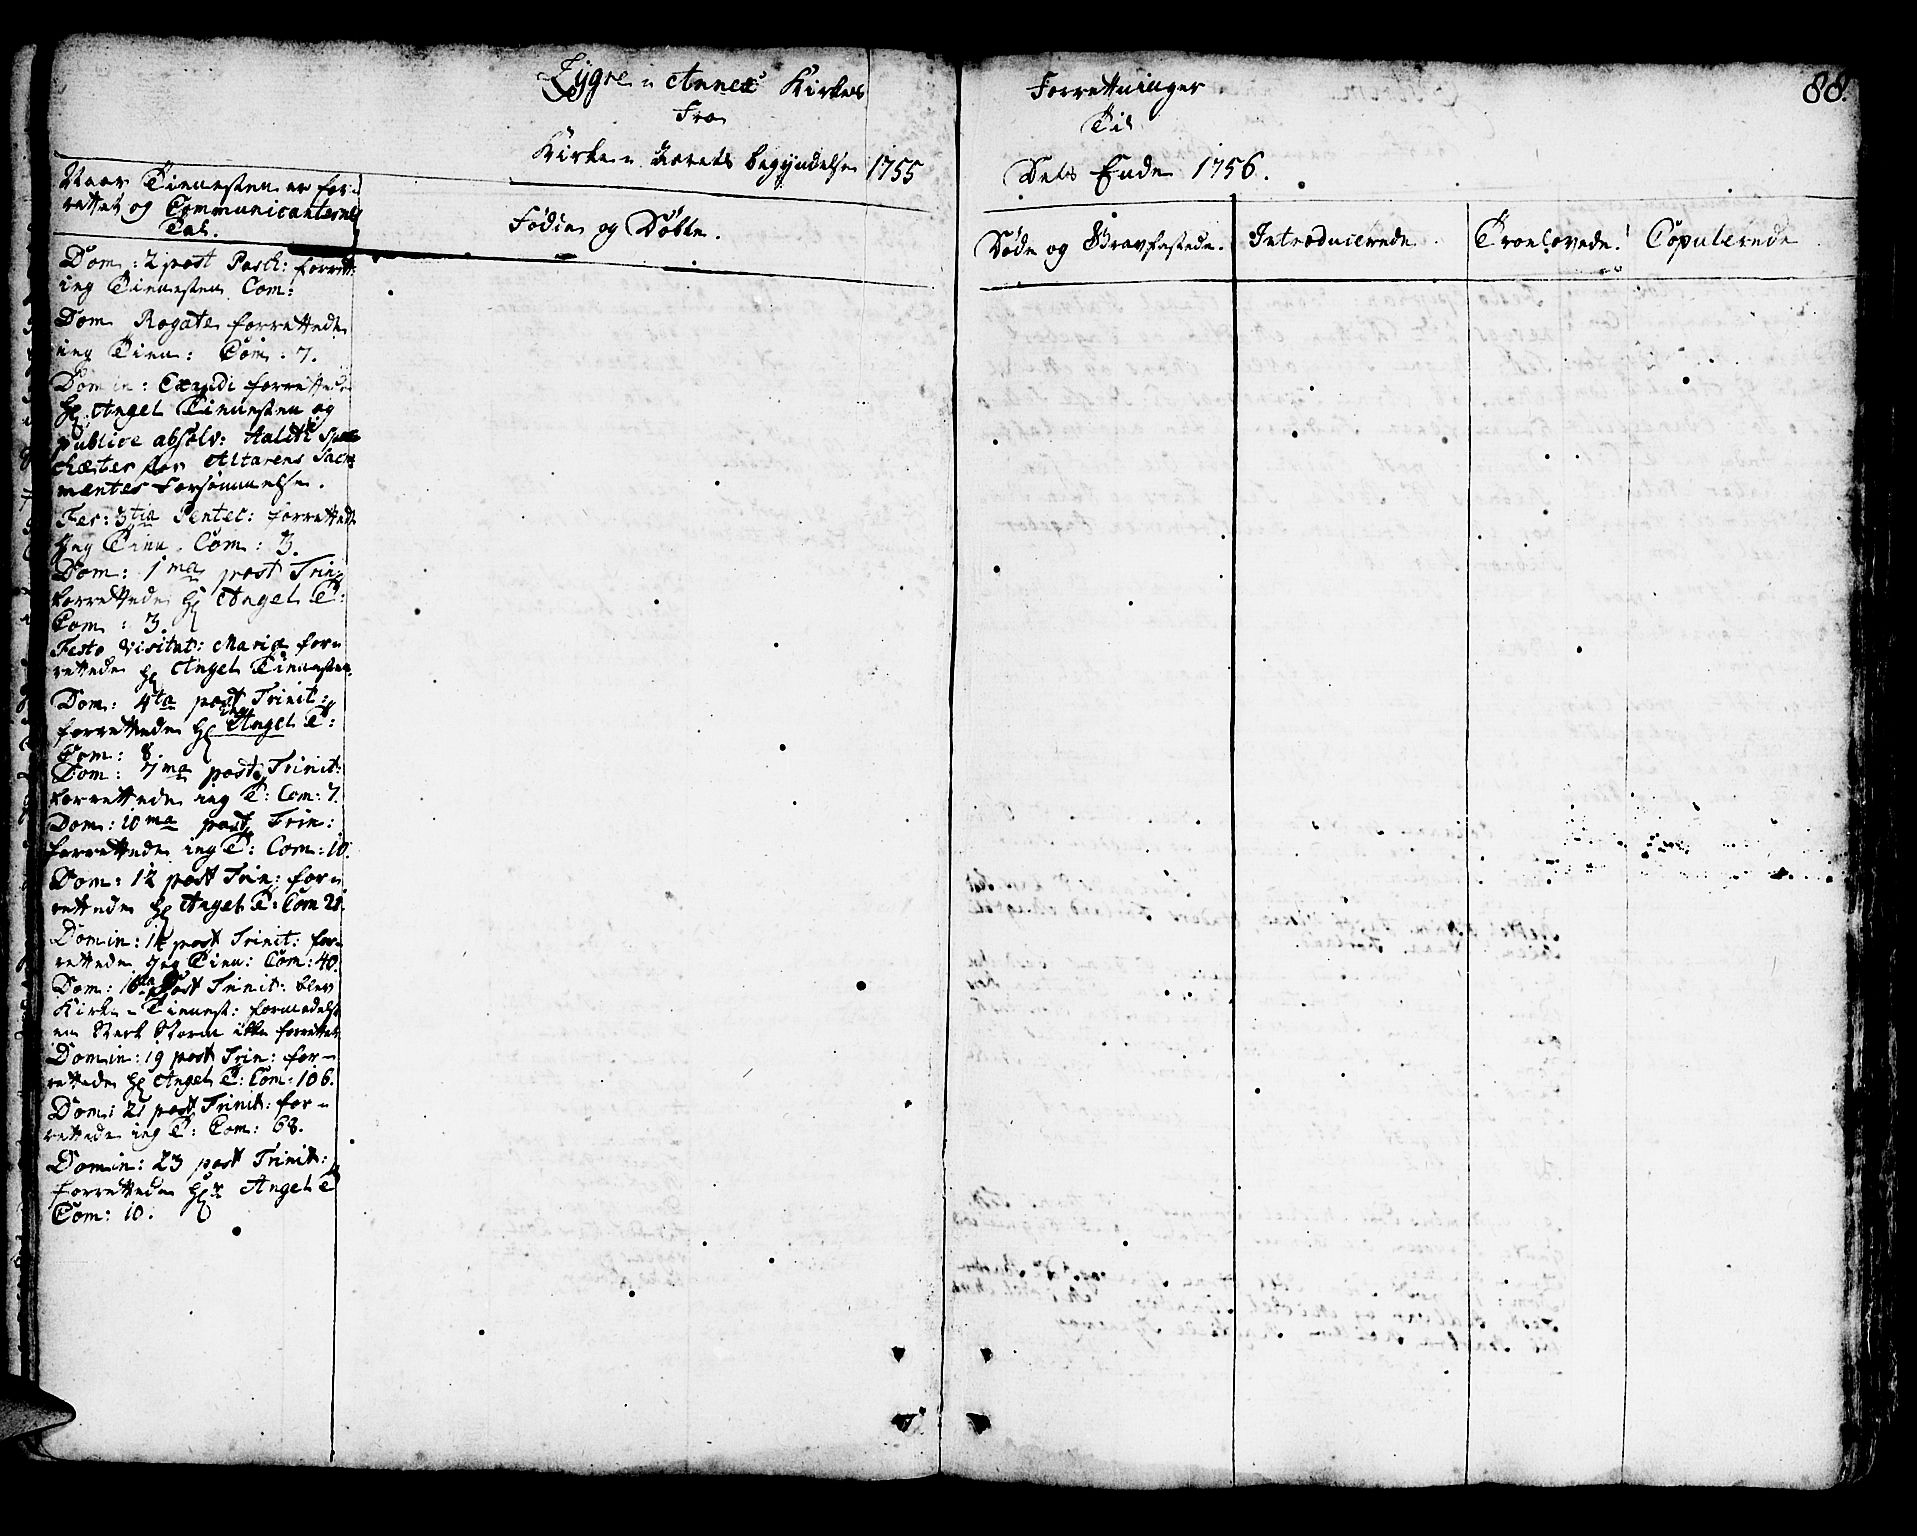 Lygre - Annex Kirkes
Fra
Kirke - Aarets begyndelse 1755
Forretninger
Til
Dets Ende 1756.
88.
Naar Tienesten er for-
rettet og Communicanternes
Tal.
Fødde og Døbte.
Døde og Gravfæstede.
Introducerede.
Troelovede.
Copulerede
Dom: 2 post Pasch: forrett:
ieg Tienesten Com:
Dom Rogate forrettede
ieg Tien: Com: 7.
Domin: Exaudi forrettede
Hr Angel Tienesten og
publice absolv: Aalit
for Altarens Sacra
mentes Forsømmelse.
Fer: 3tia Pentec: forrettede
Jeg Tien. Com: 3.
Dom: 1ma post Trin:
forrettede Hr Angel T:
Com: 3.
Festo Visitat: Mariæ for-
rettede Hr Angel Tienesten
Dom: 4ta post Trinit:
forrettede Hr Angel T:
Com: 8
Dom: 7ma post Trinit:
forrettede ieg T: Com: 7.
Dom: 10ma post Trin:
forrettede ieg T: Com: 10.
Dom: 12 post Trin: for-
rettede Hr Angel T: Com 21.
Domin: 14 post Trinit: for-
rettede Jeg Tien: Com: 40.
Dom: 16 post Trinit: blev
Kirke - Tienest: formedelst
en Sterk Storm ikke forrettet
Domin: 19 post Trin: for-
rettede Hr Angel T: Com: 106.
Dom: 21 post Trinit: for-
rettede ieg T: Com: 68.
Domin: 23 post Trinit:
forrettede Hr Angel T
Com: 10.